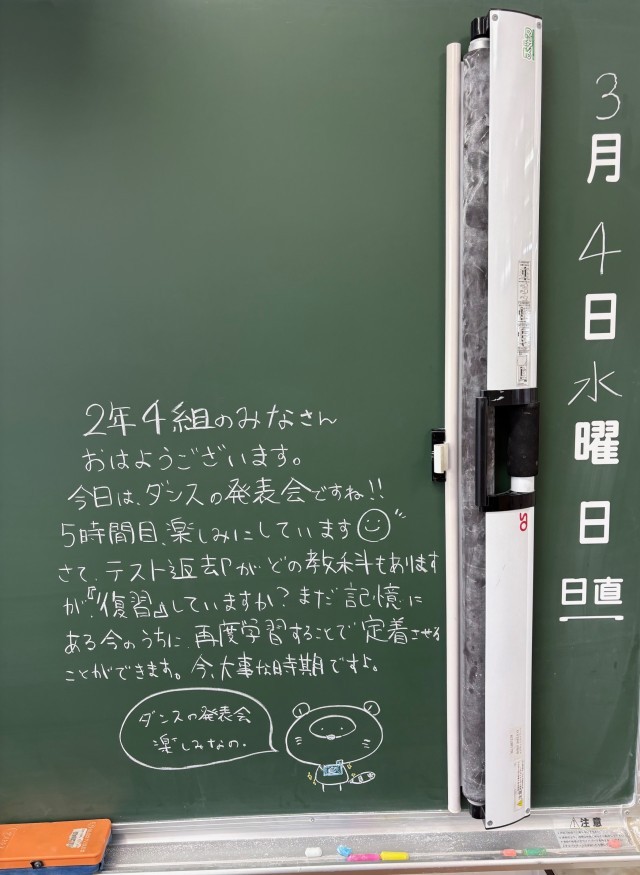 3月4日水曜日
日直
2年4組のみなさん
おはようございます。
今日は、ダンスの発表会ですね!!
5時間目、楽しみにしています
さて、テスト返却がどの教科もあります
が、『復習』していますか?まだ記憶に
ある今のうちに、再度学習することで定着させる
ことができます。今、大事な時期ですよ。
ダンスの発表会
楽しみなの。
OS
注意